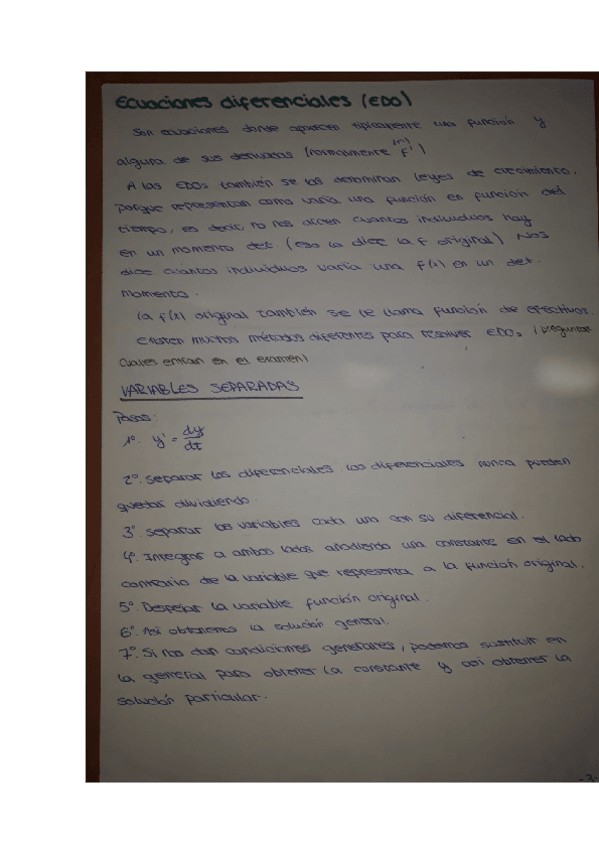 Ecuaciones diferenciales (EDO)
Son ecuaciones donde aparecen típicamente una función y
alguna de sus derivadas (normalmente f')
A las EDOs también se las denominan leyes de crecimiento,
porque representan como varía una función en función del
tiempo, es decir, no nos dicen cuantos individuos hay
en un momento det. (eso la dice la f original) Nos
dice cuántos individuos varía una f(x) en un det.
momento.
la f(x) original también se le llama función de efectivos.
Existen muchos métodos diferentes para resolver EDOs (preguntar
cuales entran en el examen)
VARIABLES SEPARADAS
Pasos:
1º. y' = dy/dt
2º. Separar los diferenciales. los diferenciales nunca pueden
quedar dividiendo.
3º. Separar las variables cada una con su diferencial.
4º. Integrar a ambos lados añadiendo una constante en el lado
contrario de la variable que representa a la función original.
5º. Despejar la variable función original.
6º. Así obtenemos la solución general.
7º. Si nos dan condiciones generares, podemos sustituir en
la general para obtener la constante y así obtener la
solución particular.
-3-